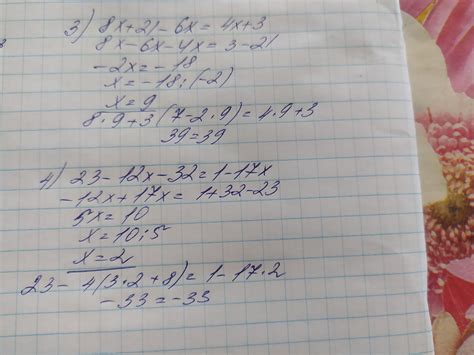 3) 8x+21-6x=4x+3
8x-6x-4x=3-21
-2x=-18
x=-18:(-2)
x=9
8·9+3(7-2·9)=4·9+3
39=39
4) 23-12x-32=1-17x
-12x+17x=1+32-23
5x=10
x=10:5
x=2
23-4(3·2+8)=1-17·2
-33=-33